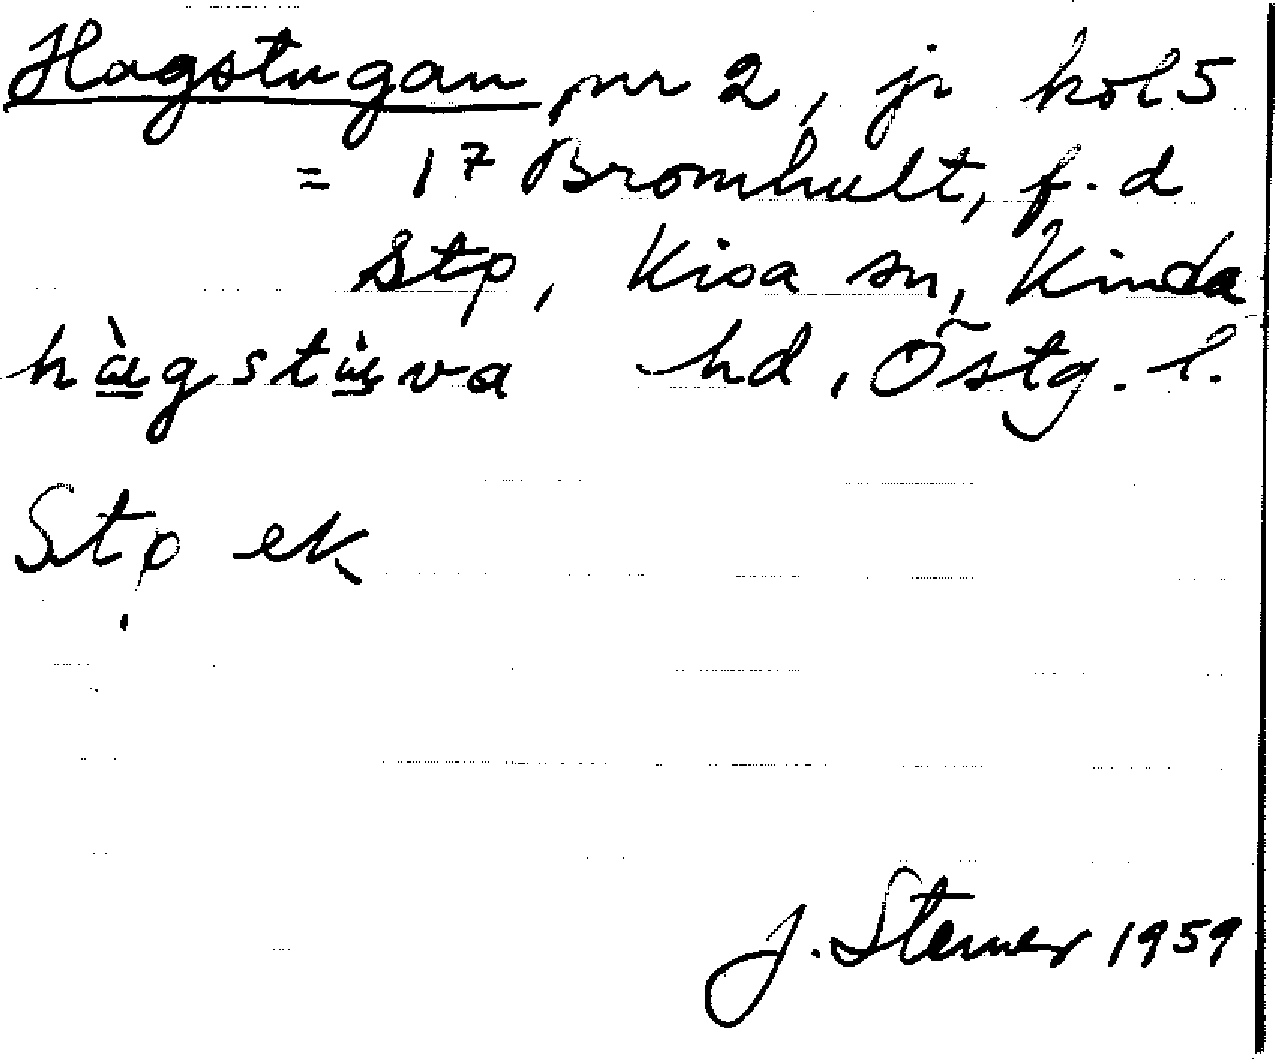 Hagstugan nr 2, jr kol 5
= 1⁷ Bromhult, f.d
Stp, Kisa sn, Kinda
hàgstùva hd, Östg. l.
Stp ek
J. Sterner 1959